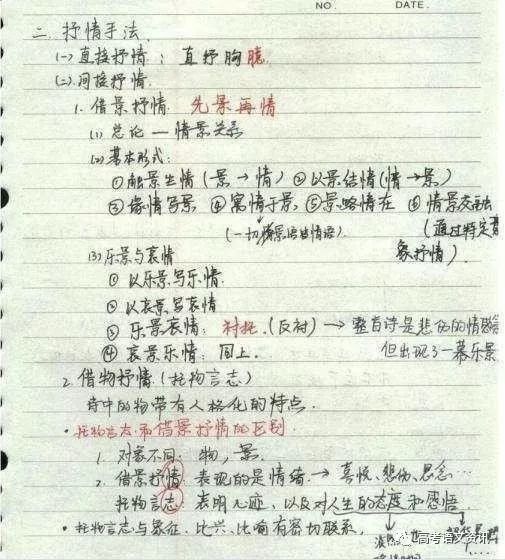 NO.
DATE.
二. 抒情手法.
(一) 直接抒情：直抒胸臆.
(二) 间接抒情.
1. 借景抒情. 先景再情
(1) 总论 — 情景关系
(2) 基本形式：
① 融景生情 (景→情) ② 以景结情 (情→景)
③ 缘情写景 ④ 寓情于景 ⑤ 景略情在 ⑥ 情景交融
(一切景语皆情语) (通过特定意
象抒情).
(3) 乐景与哀情
① 以乐景写乐情.
② 以哀景写哀情
③ 乐景哀情：衬托. (反衬) → 整首诗是悲伤的情
④ 哀景乐情：同上. 但出现了一幕乐景
2. 借物抒情 (托物言志)
诗中的物带有人格化的特点.
• 托物言志和借景抒情的区别
1. 对象不同：物，景.
2. 借景抒情：表现的是情绪. → 喜悦、悲伤、思念…
托物言志：表明心迹，以及对人生的态度和感悟
• 托物言志与象征、比兴、比喻有密切联系.
高考语文资讯